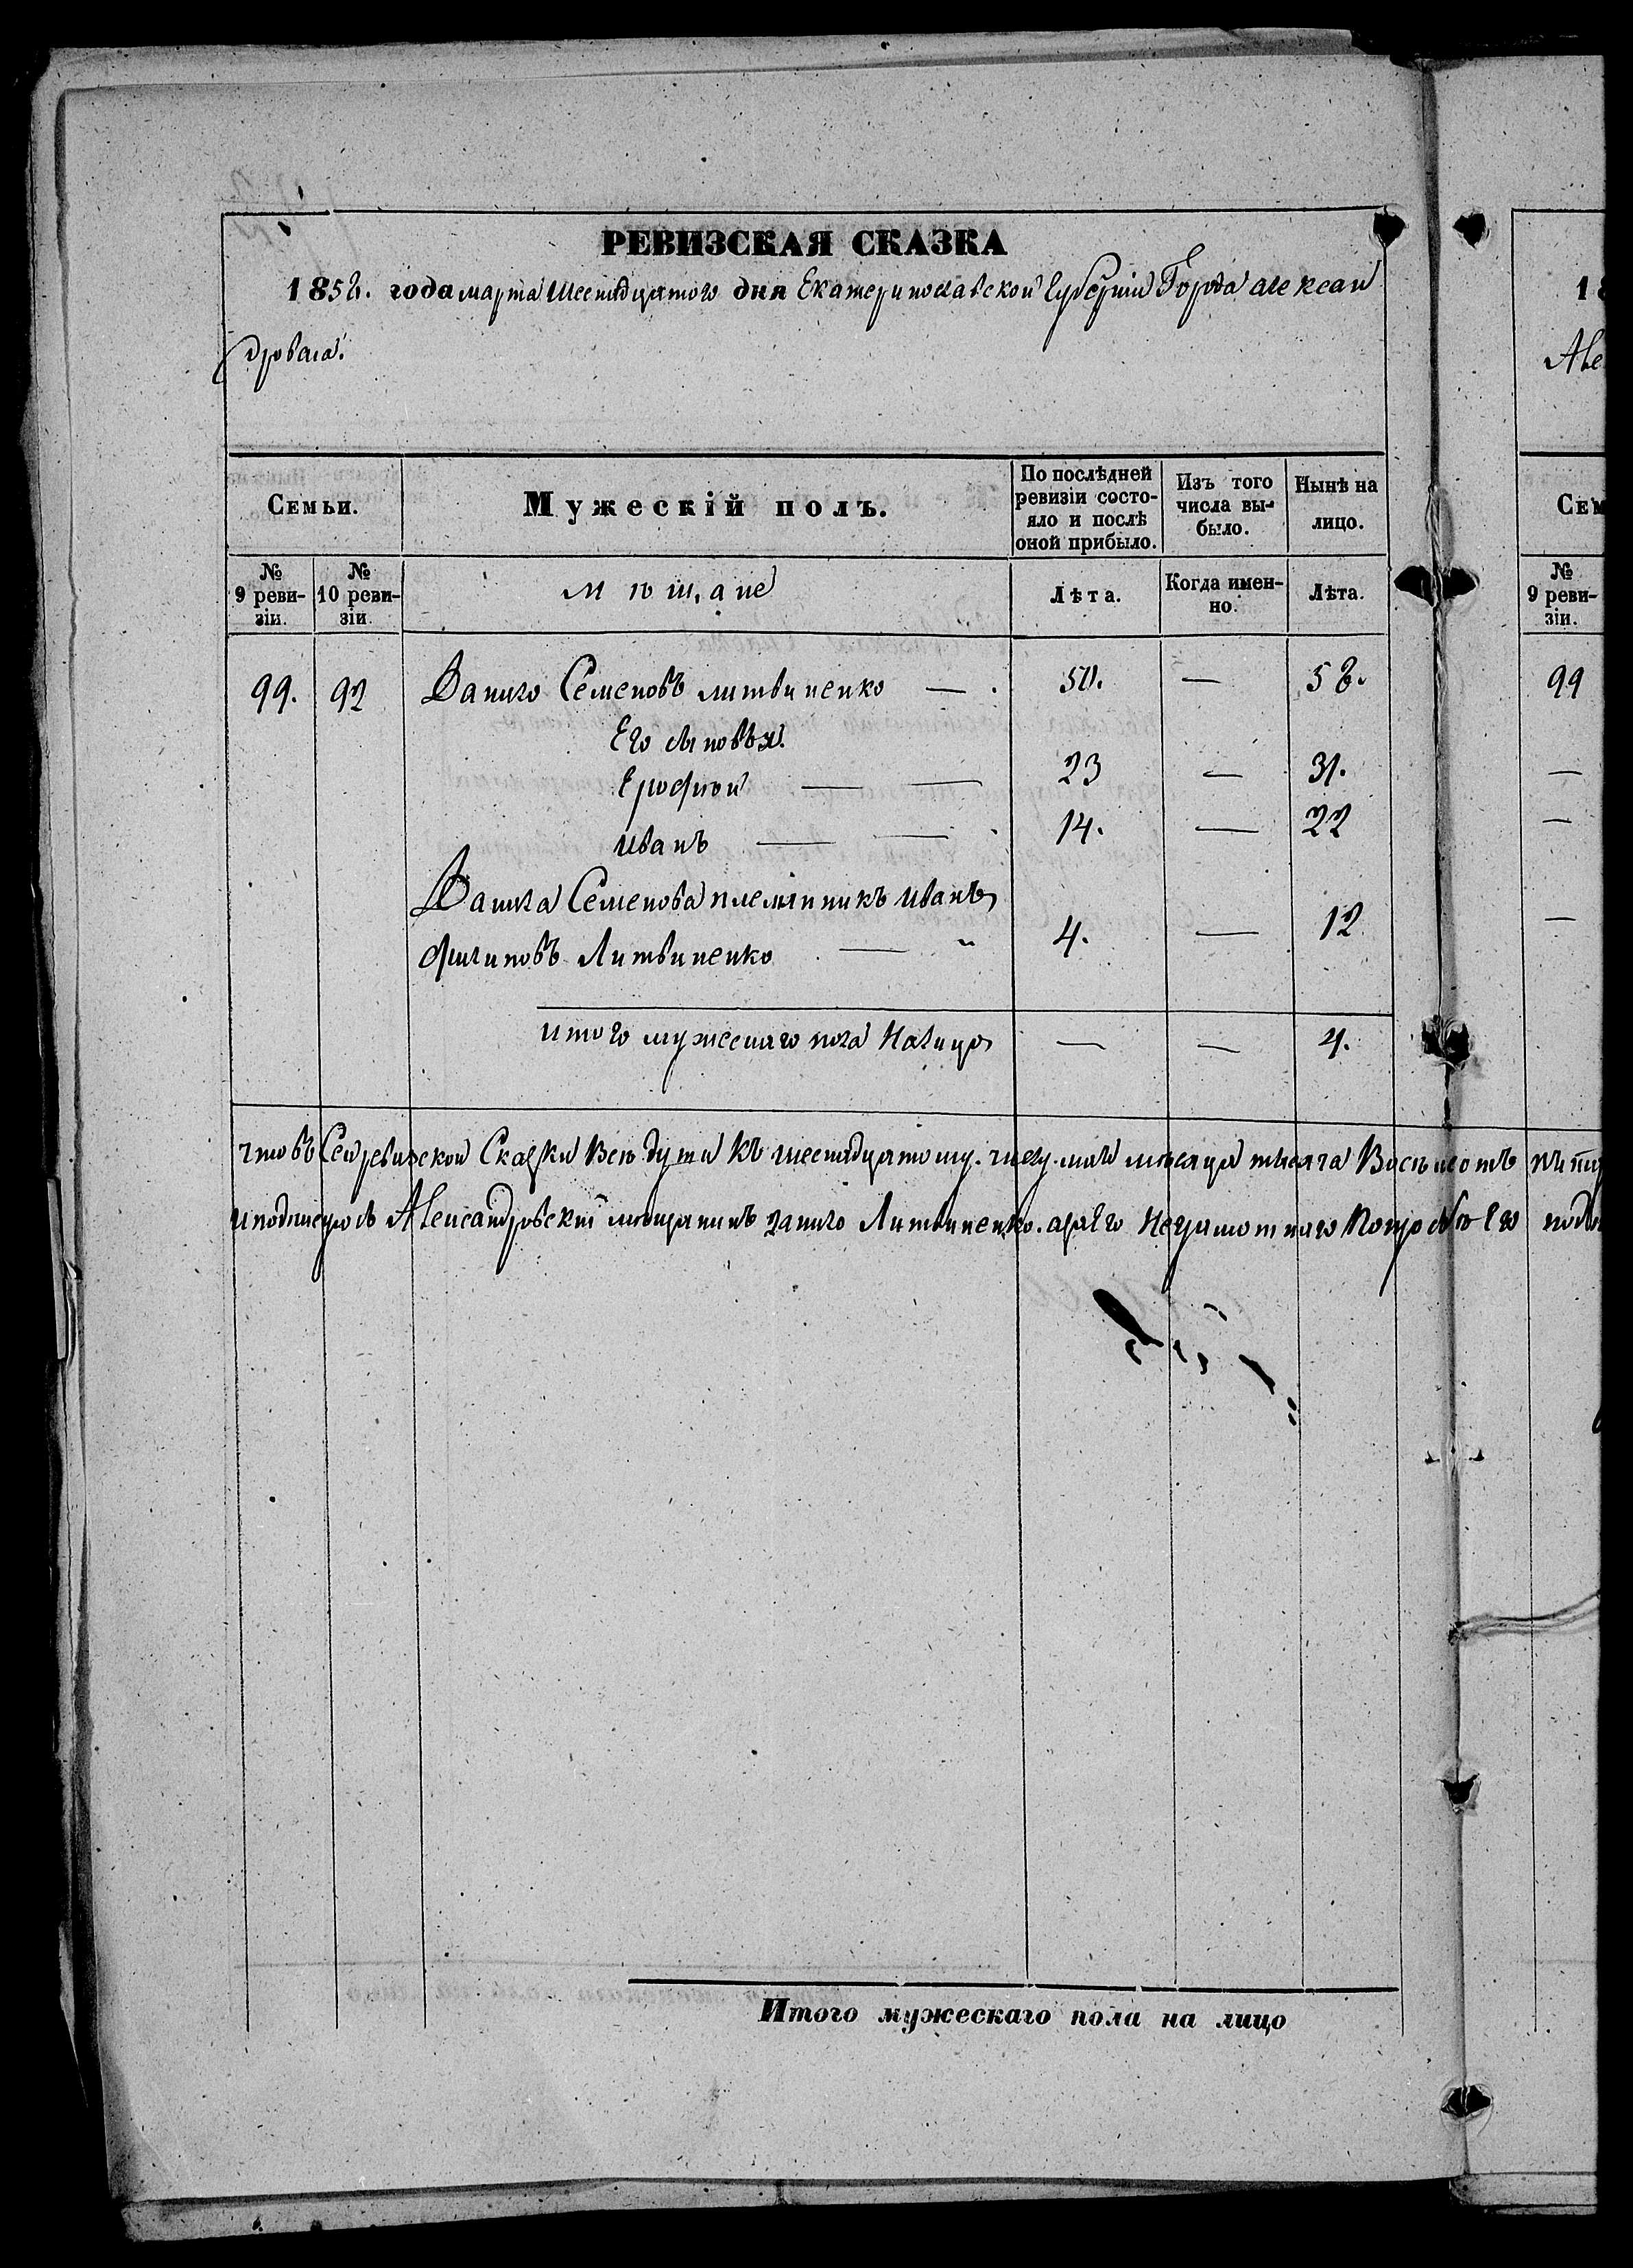 РЕВИЗСКАЯ СКАЗКА
1858. года марта Шеснадцатого дня Екатеринославской Губернии Города алексан
дровска.
Семьи.
Мужескій полъ.
По послѣдней ревизіи состо-
яло и послѣ
оной прибыло.
Изъ того
числа вы-
было.
Нынѣ на
лицо.
№
9 реви-
зіи.
№
10 реви-
зіи.
мѣщане
Лѣта.
Когда имен-
но.
Лѣта.
99. 92 Данило Семеновъ литвиненко — . 50. — 58.
Его сыновья.
Ерофѣй — — 23 — 31.
иванъ — — . 14. — 22
Данила Семенова племянникъ иванъ
филиповъ Литвиненко — " 4. — 12
итого мужескаго пола Налицо — — 4.
что въ Сей ревизской Сказки Всѣ души къ шеснадцатому. числу. марта месяца тысяча Восемсотъ
и подписуюсь Александровский мещанинъ данило Литвиненко. а за Его Неграмотного По прозбѣ Его
Итого мужескаго пола на лицо
18
Але
Сем
№
9 реви-
зіи.
99
—
—
—